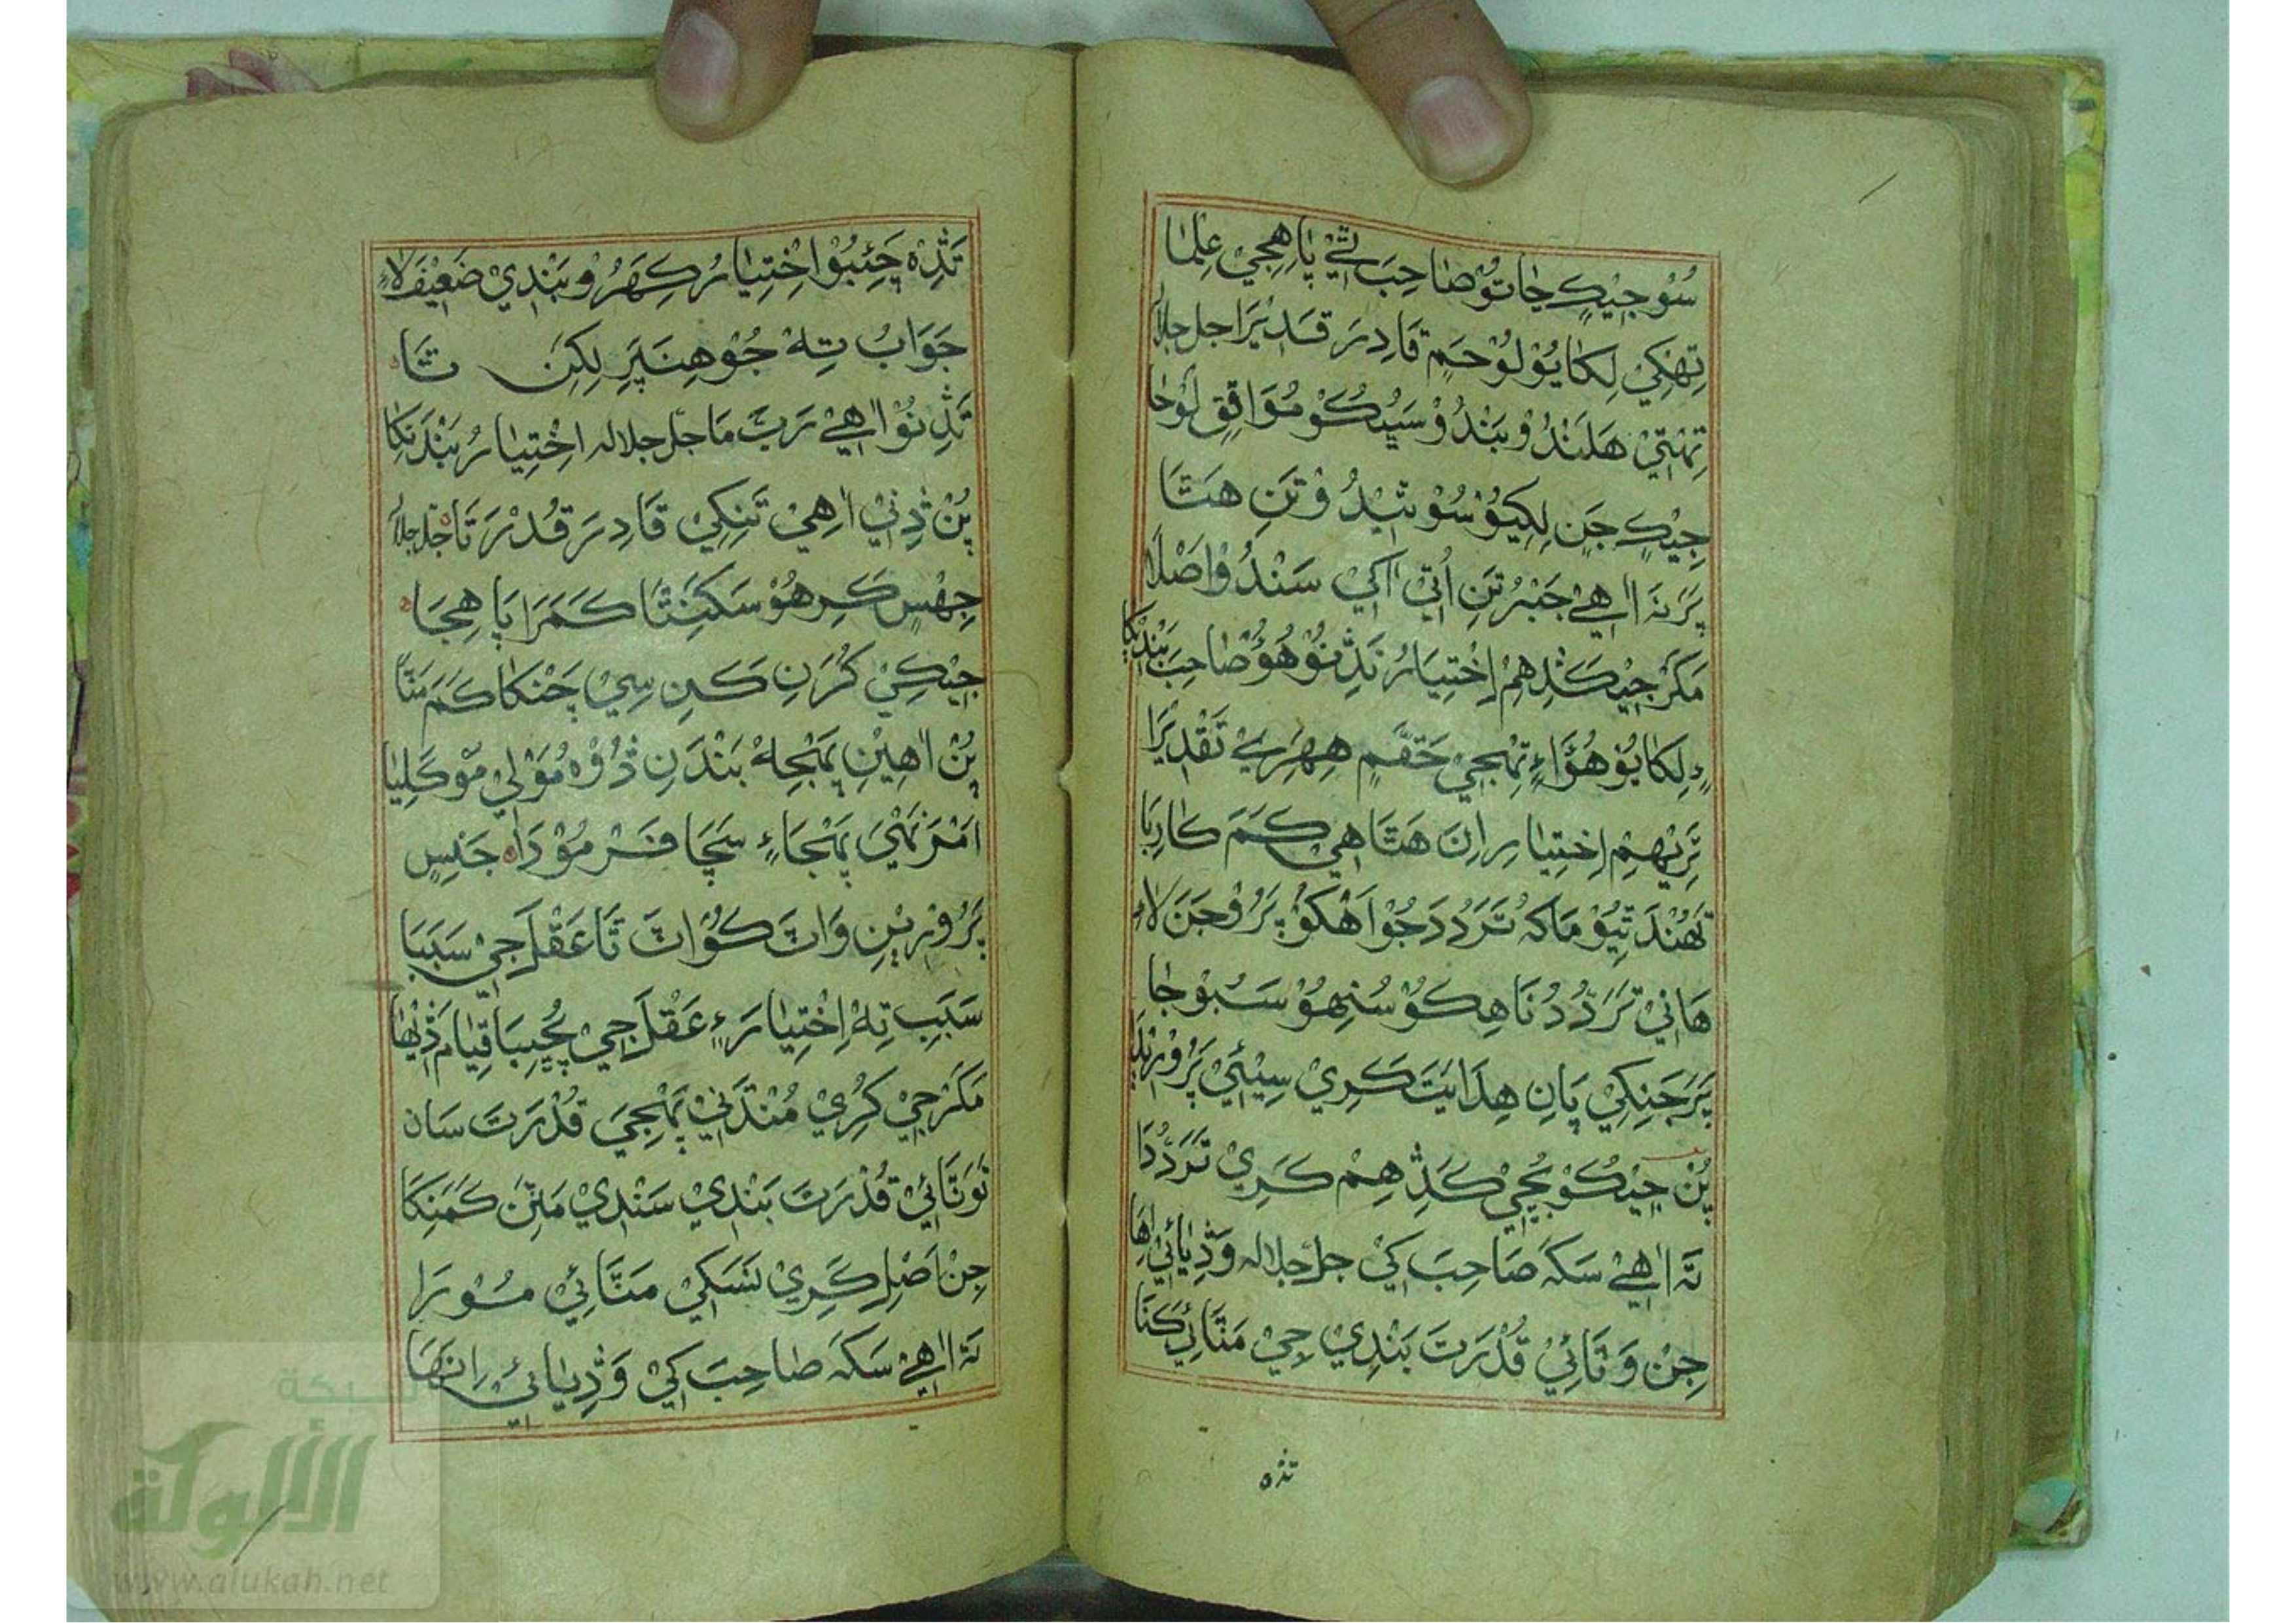 سُوْجِيْڪٖ جٰاتُوْ صٰاحِبَ تٖيْ پٰاهِجِيْ عِلْمٰا
تِهْنکِيْ لِکٰايُوْ لُوْحَمِ قَادِرَ قَدِيْرَا جل جلاله
تِهْتِيْ هَلَنْدُوْ بَنْدُوْ سَيُڪُوْ مُوَافِقِ لُوْحٰا
جِيْڪٖ جَنِ لِکِيُوْ سُوْ ٿِيْدُوْ تَنِ هَٿَا
پَرَ نَہ اٰهيْ جَبْرُ تَنِ اُتِيْ اَکِيْ سَنْدُوْ اَصْلَا
مَگَرْ جِيْڪَڏِهِمْ اِخْتِيَارُ نَڏِنُوْ هُوْ صَاحِبَ بَنْدَنِکَا
ءِ لِکٰايُوْ هُؤَاءِ تِهْجِيْ حَقَّمِ هِهَڙِيْ تَقْدِيْرَا
تَڙِيْهِمْ اِخْتِيٰارِ اِنَ هَٿَا هِيْ ڪَمَ کَارِيَا
تَهْنْدَ ٿِيُوْ مَاکَہ تَرَدُّدَ جُوْ اَهْکُوْ پَرُوْجَنَ لَاءِ
هَاڻِيْ تَرَدُّدُ نَاهِڪُوْ سُنِهُوْ سَبُوْجٰا
پَرَ جَنِکِيْ پَانِ هِدَايَتَ ڪَرِيْ سِيْئِيْ پَرُوْڙِيْنِدَا
پُنْ جِيْڪُوْ پُڇِيْ ڪَڏِهِمْ ڪَرِيْ تَرَدُّدَا
تَہ اٰهيْ سَکَہ صَاحِبَ کِيْ جل جلاله وَڏِيَائِيْ اِهَا
جِنْ وَتَائِيْ قُدْرَتَ بَنْدِيْ جِيْ مَتَّائِيْ ڪَنَا
تڏه
تَڏِهْ چَئِبُوْ اِخْتِيٰارُ ڪِهَڙُوْ بَنْدِيْ ضَعِيْفَ لَاءِ
جَوَابُ تِهْ جُوْ هِنَپَرِ لِکِنَ تَا
تَڏِنُوْ اٰهيْ رَبَّ مَا جل جلاله اخْتِيٰارُ بَنْدَنِکَا
پُنْ ڏِنِيْ اٰهِيْ تَنِکِيْ قَادِرَ قُدْرَتَا جل جلاله
جِهْسٖ ڪَرِ هُوْ سَکَنِٿَا ڪَمَرَا پَاهِجَا
جِيْڪِيْ ڪَرَنِ ڪَنِ سِيْ چَنْکَا ڪَمَ مَنَّا
پُنْ اٰهِيْنِ پِهْجِہْ بَنْدَنِ ڏُوْہ مُوْلٰي مُوْڪَلِيَا
اَمْرَ نَهْيَ پَهْجَاءِ سَچَا فَرْمُوْدَاہ جَنِسٖ
پَرُوْڙِيْنِ وَاٽَ ڪُوَاٽَ ٿَا عَقْلَ جِيْ سَبَبَا
سَبَبِ تِہْ اِخْتِيٰارَ ءِ عَقْلَ جِيْ پُڇِيْبَا قِيٰامَ ڏِيْهَا
مَگَرْ جِيْ ڪُرِيْ مُنْڌَنِيْ پَهْجِيَ قُدْرَتَ سَان
تَوَتَائِيْ قُدْرَتَ بَنْدِيْ سَنْدِيْ مَنِّنْ ڪَمَنِکَا
جِنْ اَصْلِ ڪَرِيْ نَسَکِيْ مَتَّائِيْ مُوْرَا
تَہ اٰهيْ سَکَہ صٰاحِبَ کِيْ وَڏِيٰائِيْ اِنَهَا
شبكة
الألوكة
www.alukah.net